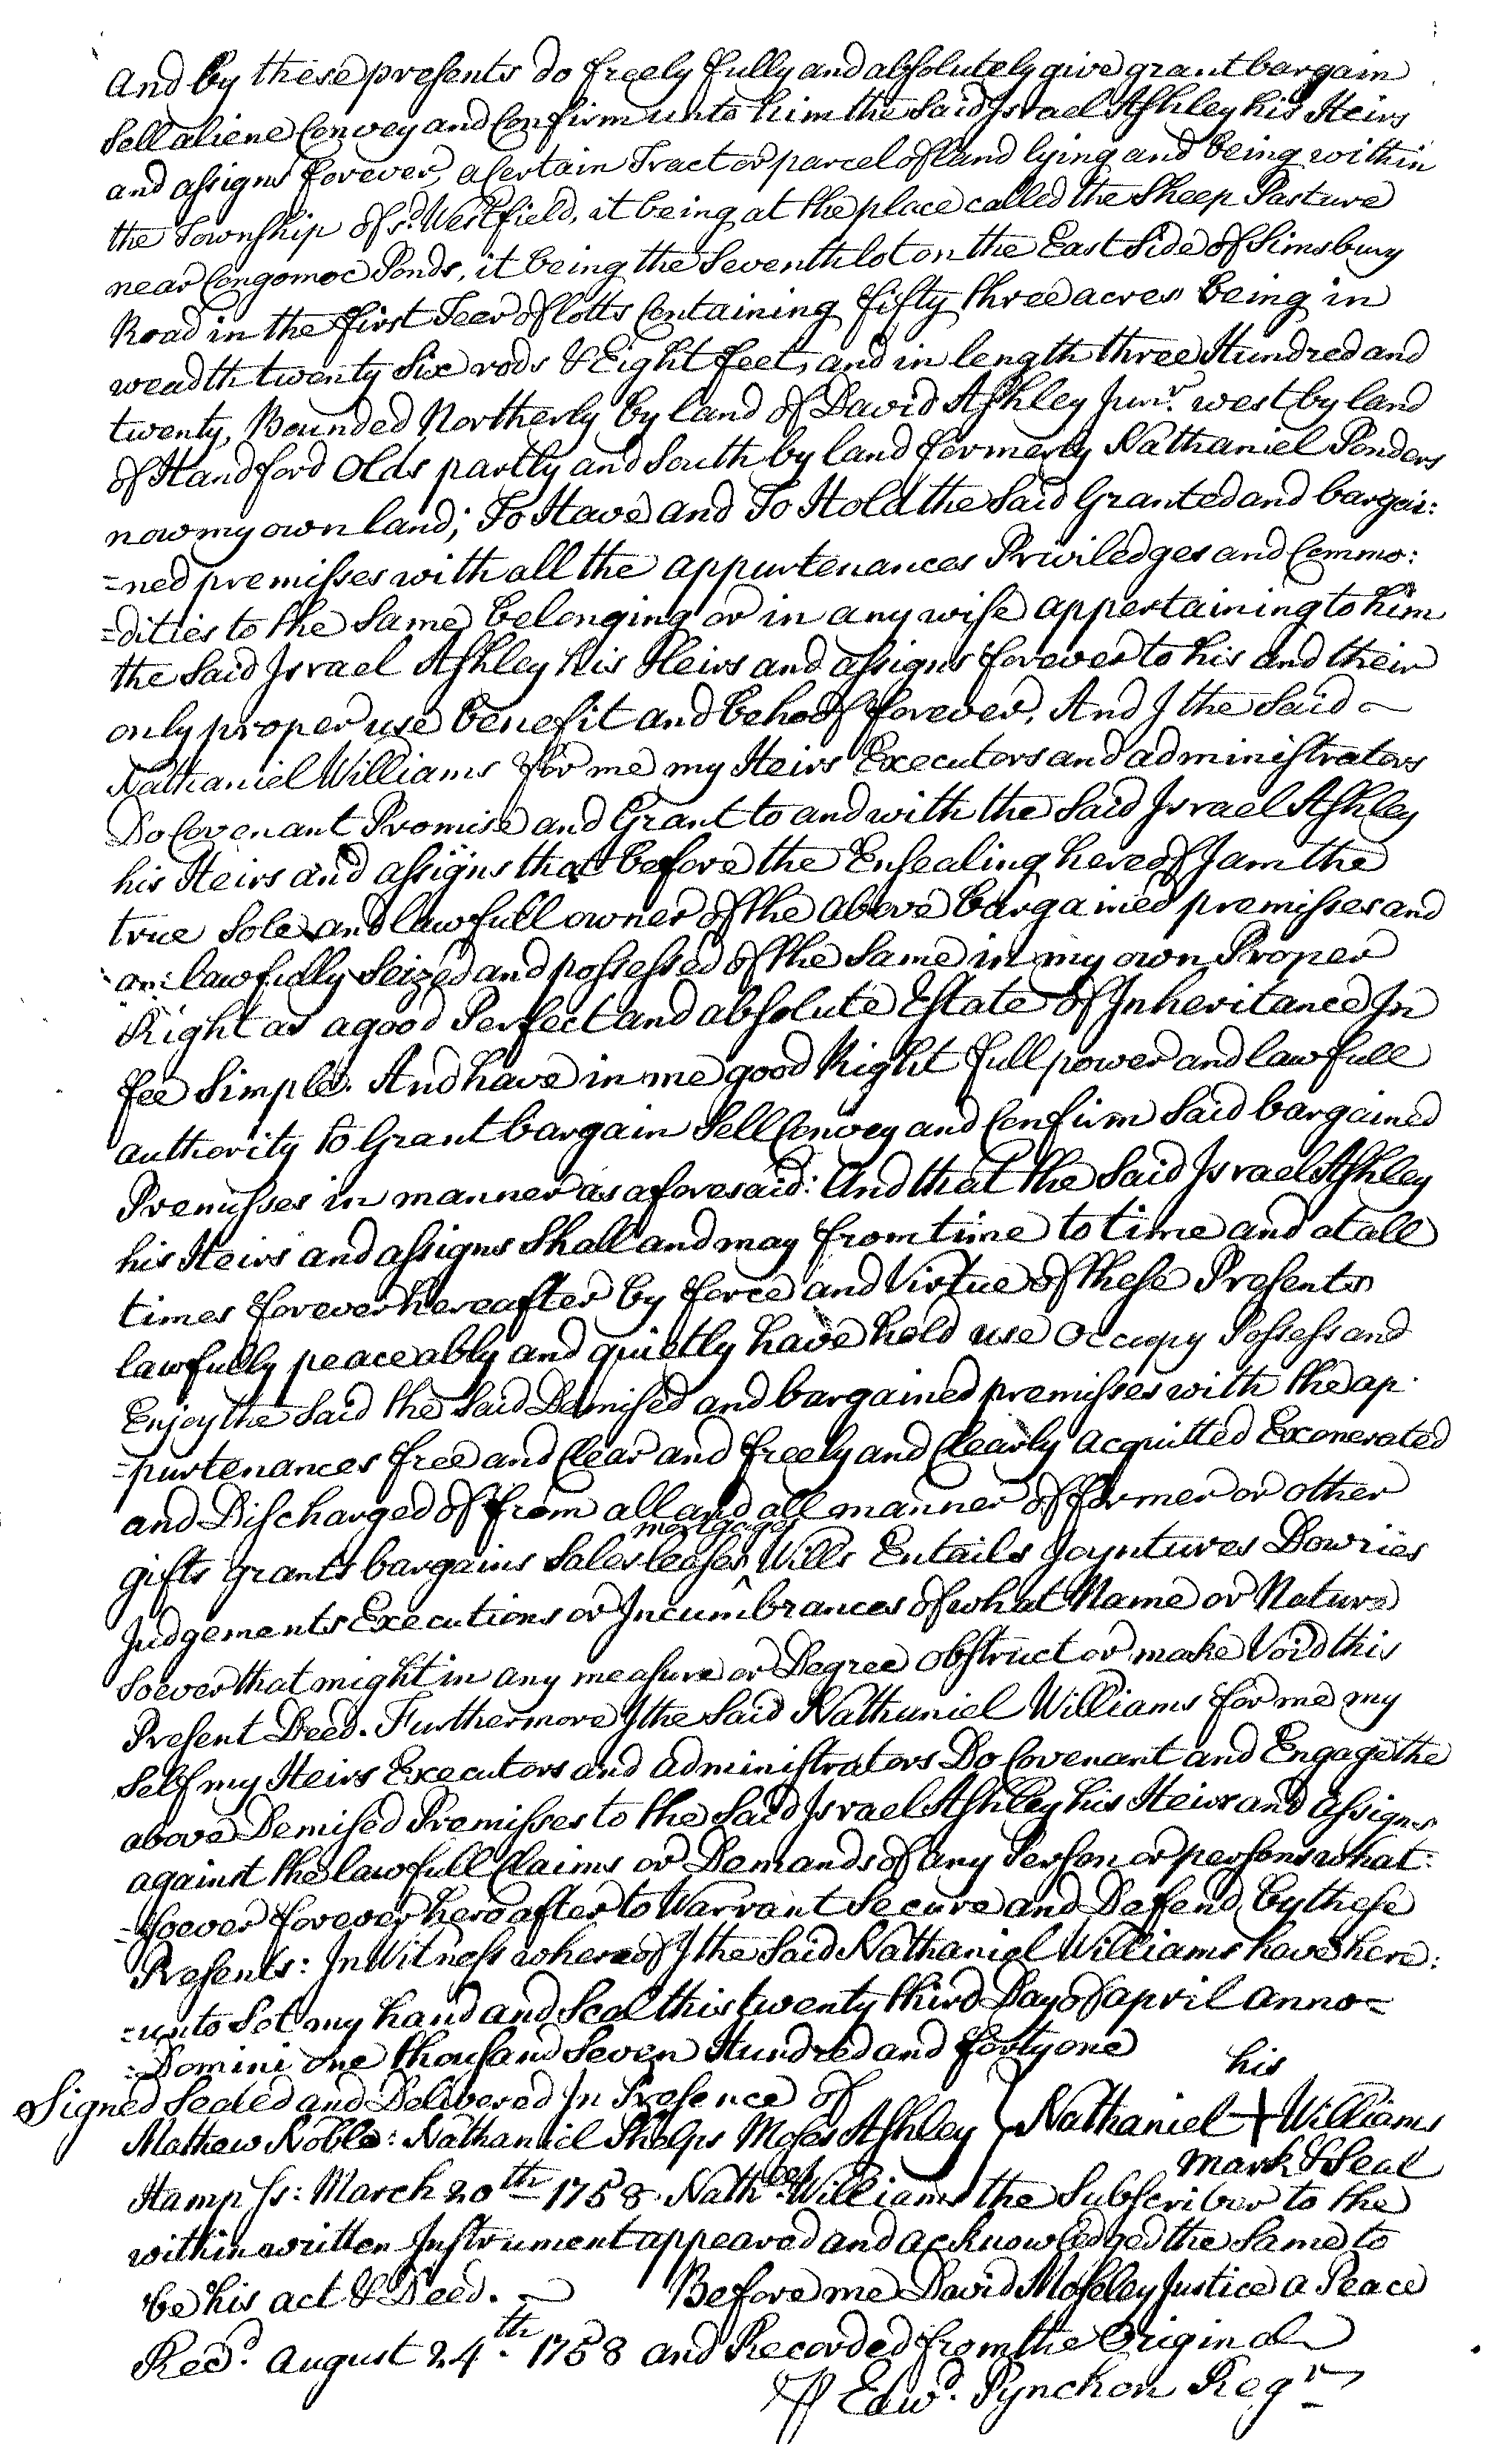 And by these presents do freely fully and absolutely give grant bargain
Sell aliene Convey and Confirm unto him the Said Israel Ashley his Heirs
and assigns forever, a Certain Tract or parcel of land lying and being within
the Township of sd. Westfield, it being at the place called the Sheep Pasture
near Congomoc Ponds, it being the Seventh lot on the East Side of Simsbury
Road in the first Teer of lotts Containing fifty three acres being in
weadth twenty Six rods & Eight feet, and in length three Hundred and
twenty, Bounded Northerly by land of David Ashley Junr. west by land
of Handford Olds partly and South by land formerly Nathaniel Ponders
now my own land; To Have and To Hold the Said Granted and bargai:
=ned premisses with all the appurtenances Priviledges and Commo:
=dities to the Same belonging or in any wise appertaining to him
the Said Israel Ashley his Heirs and assigns forever to his and their
only proper use benefit and behoof forever. And I the Said ~
Nathaniel Williams for me my Heirs Executors and administrators
Do Covenant Promise and Grant to and with the Said Israel Ashley
his Heirs and assigns that before the Ensealing hereof I am the
true Sole and lawfull owner of the above bargained premisses and
am lawfully Seized and possessed of the Same in my own Proper
Right as a good Perfect and absolute Estate of Inheritance In
fee Simple. And have in me good Right full power and lawfull
authority to Grant bargain Sell Convey and Confirm Said bargained
Premisses in manner as aforesaid: And that the Said Israel Ashley
his Heirs and assigns Shall and may from time to time and at all
times forever hereafter by force and Virtue of these Presents
lawfully peaceably and quietly have hold use Occupy Possess and
Enjoy the Said the Said Demised and bargained premisses with the ap
=purtenances free and Clear and freely and Clearly acquitted Exonerated
and Discharged of from all and all manner of former or other
gifts grants bargains Sales leases ^ mortgages Wills Entails Joyntures Dowries
Judgements Executions or Incumbrances of what Name or Nature
Soever that might in any measure or Degree obstruct or make Void this
Present Deed. Furthermore I the Said Nathaniel Williams for me my
Self my Heirs Executors and administrators Do Covenant and Engage the
above Demised Premisses to the Said Israel Ashley his Heirs and assigns
against the lawfull Claims or Demands of any Person or persons what:
=soever forever hereafter to Warrant Secure and Defend by these
Presents: In Witness whereof I the Said Nathaniel Williams have here:
=unto Set my hand and Seal this twenty third Day of april anno=
=Domini one thousand Seven Hundred and forty one
his
Signed Sealed and Delivered In Presence of
Mathew Noble: Nathaniel Phelps Moses Ashley } Nathaniel + Williams
mark & Seal
Hamp ss: March 20th 1758. Nathel. Williams the Subscriber to the
within written Instrument appeared and acknowledged the Same to
be his act & Deed. ~ Before me David Moseley Justice a Peace
Recd. august 24th. 1758 and Recorded from the Original
P Edwd. Pynchon Regr